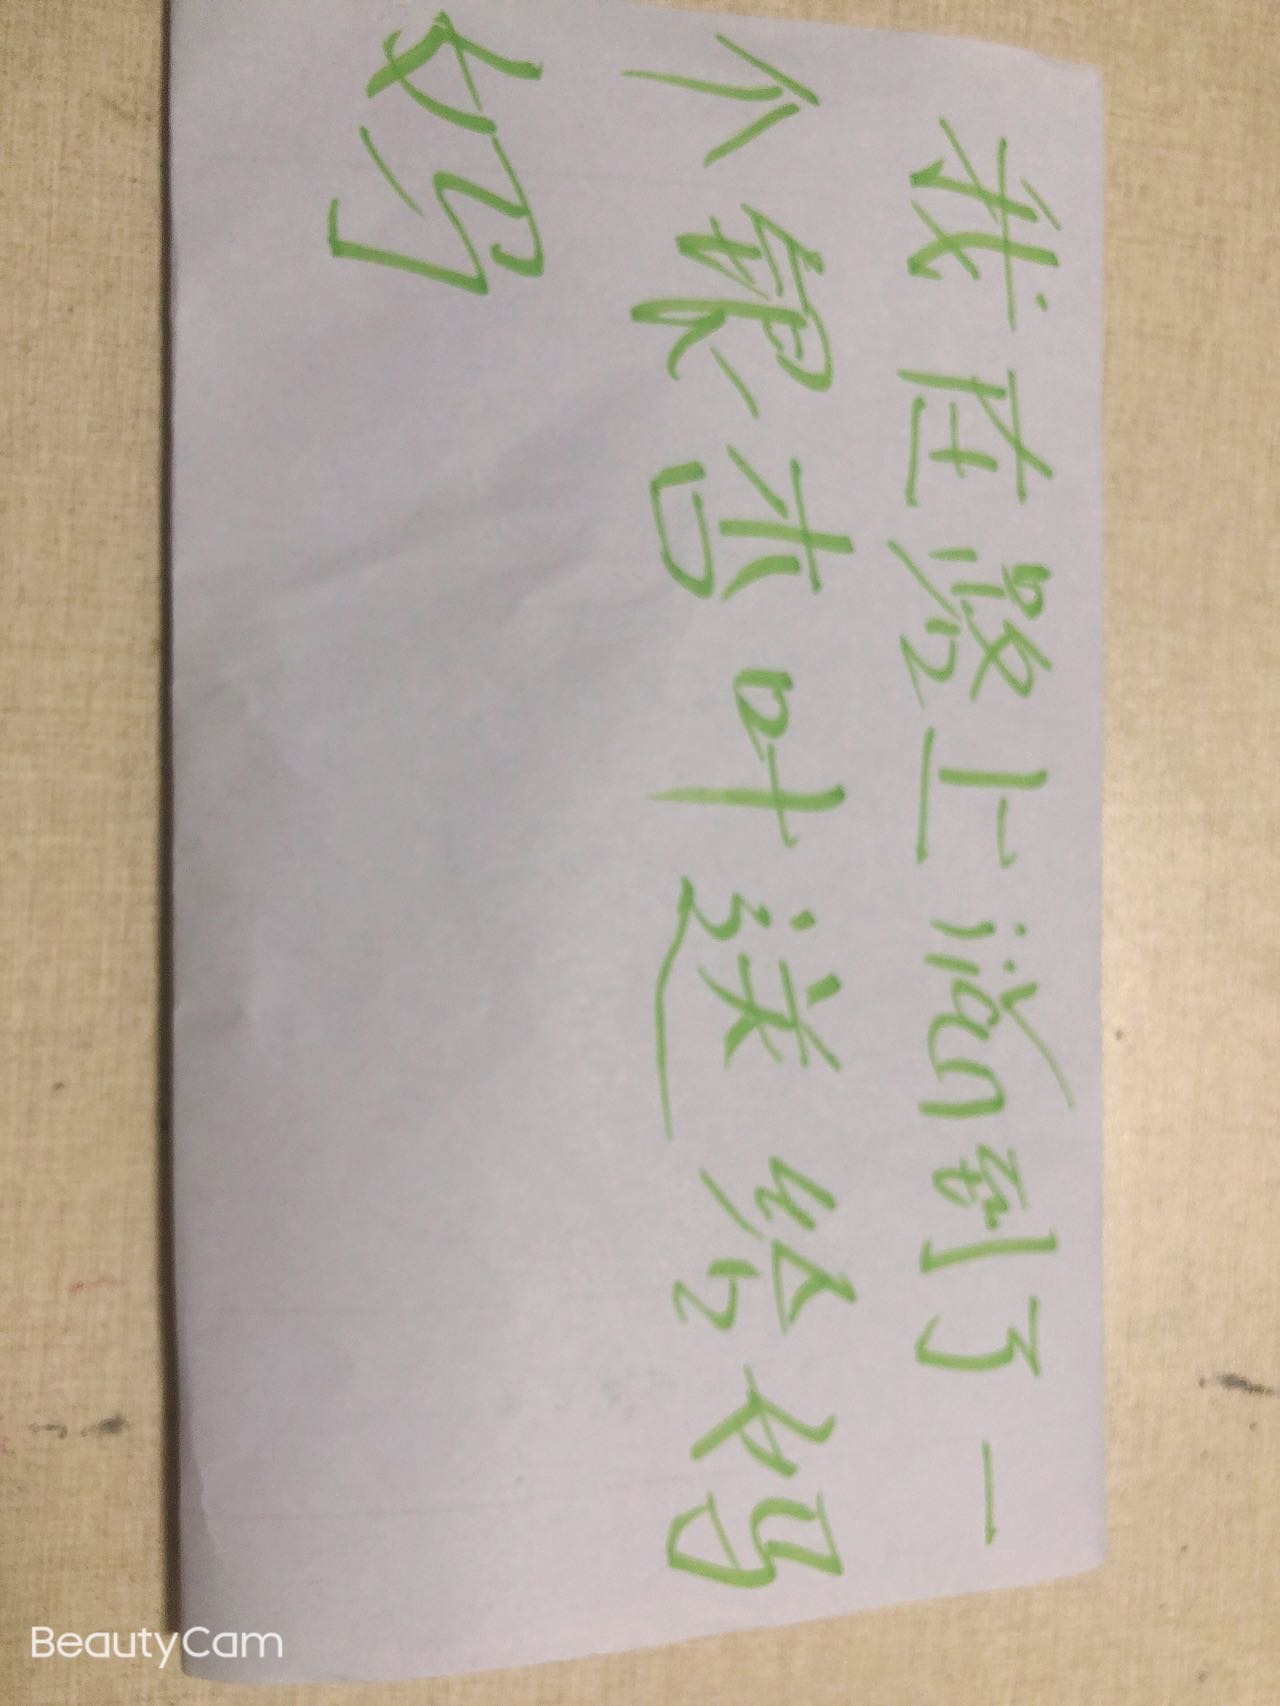 我在路上jiǎn到了一
个银杏叶送给妈
妈
BeautyCam